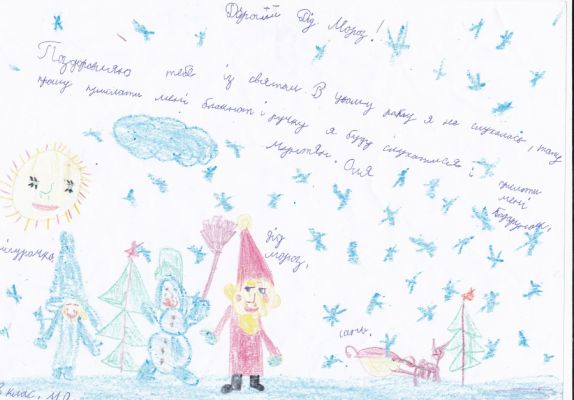 Дорогий Дід Мороз!
Поздоровляю тебе із святом. В цьому році я не слухалась, тому
прошу прислати мені блокнот і ручку я буду слухатися і
Мартян. Оля
прислати
мені
подарунок,
дід
мороз,
снігурочка
сани.
клас.